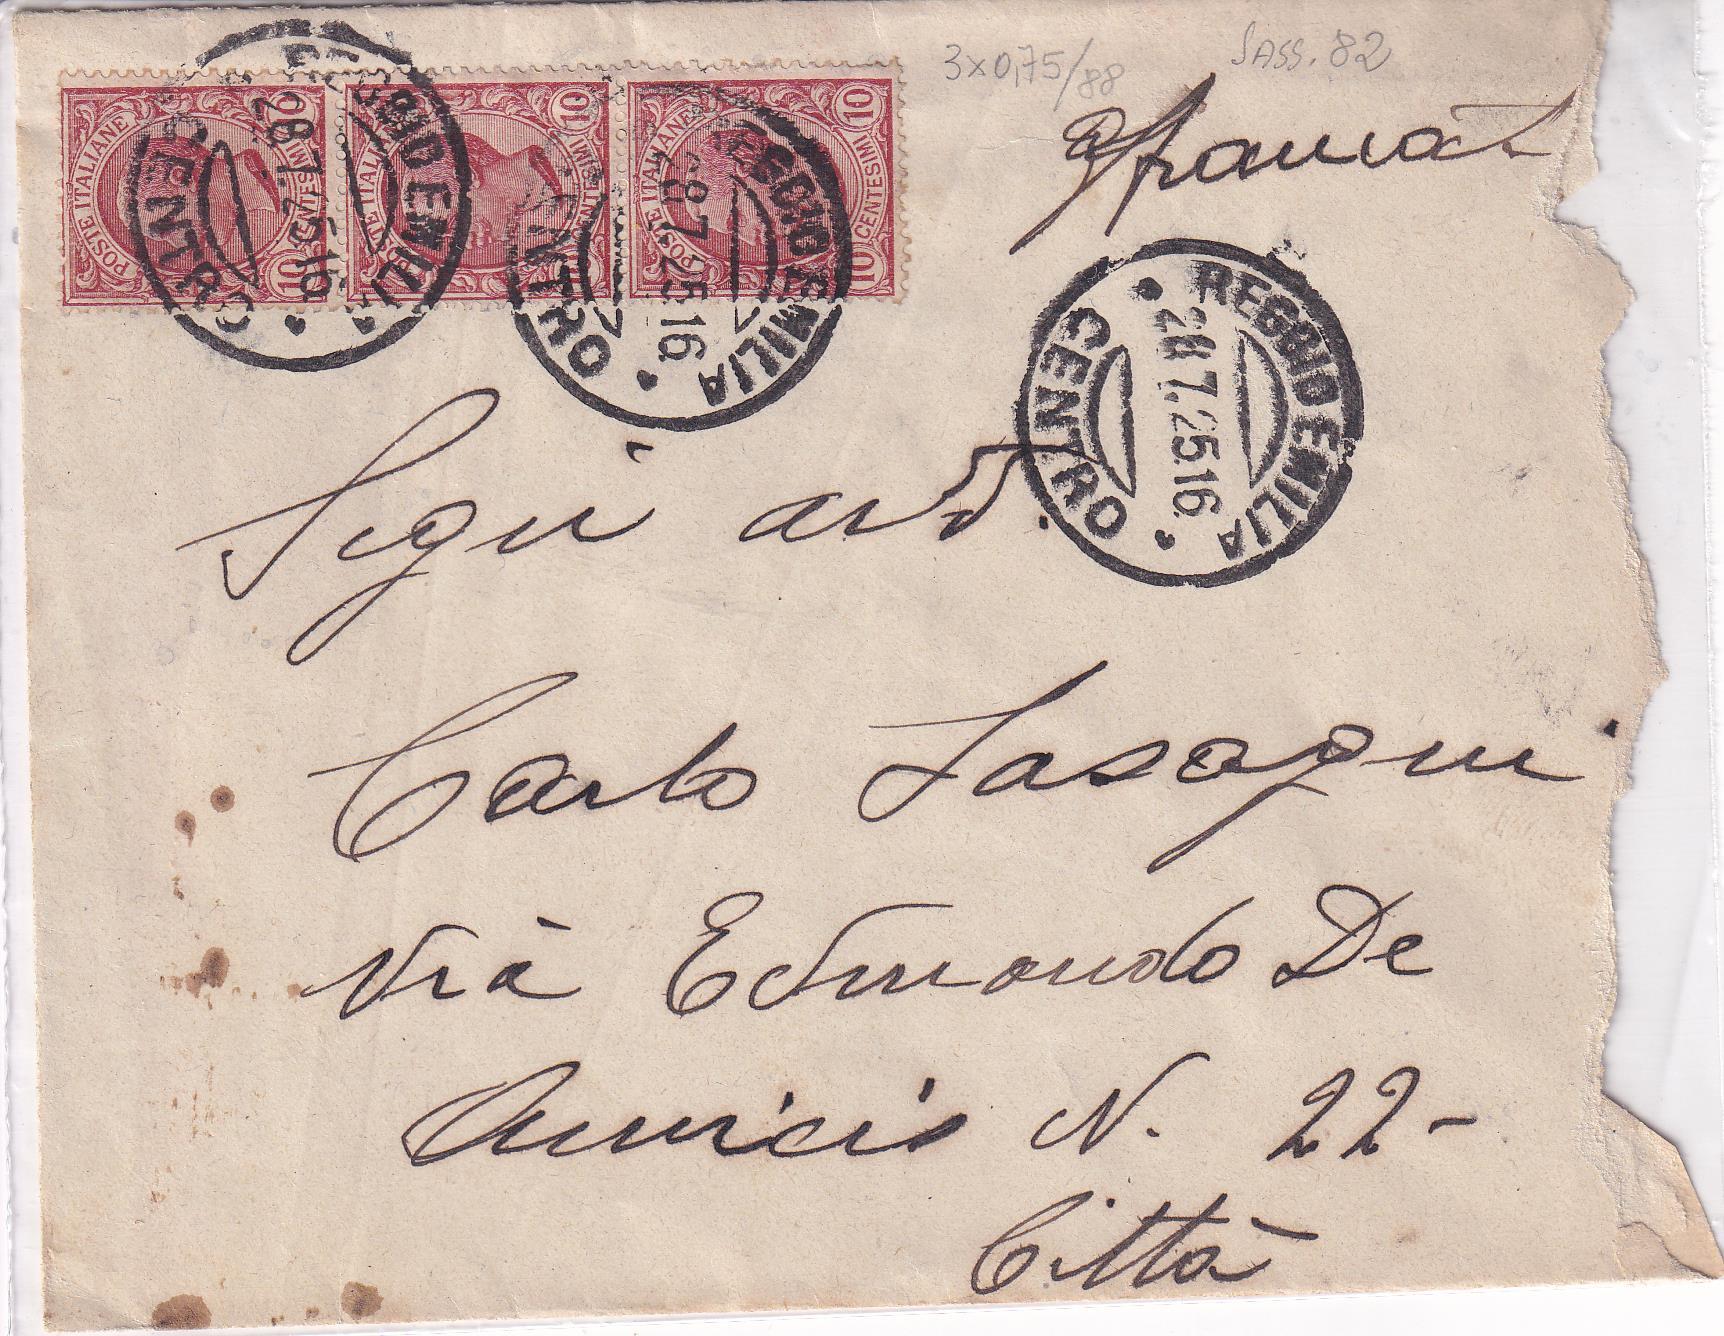 3x0,75/88
SASS. 82
10 POSTE ITALIANE CENTESIMI 10
10 POSTE ITALIANE CENTESIMI
10 POSTE ITALIANE CENTESIMI 10
REGGIO EMILIA
28.7.25.16
CENTRO
REGGIO EMILIA
28.7.25.16
CENTRO
REGGIO EMILIA
28.7.25.16
CENTRO
Carlo Lasagni
Vià Edmondo De
Amicis N. 22-
Città